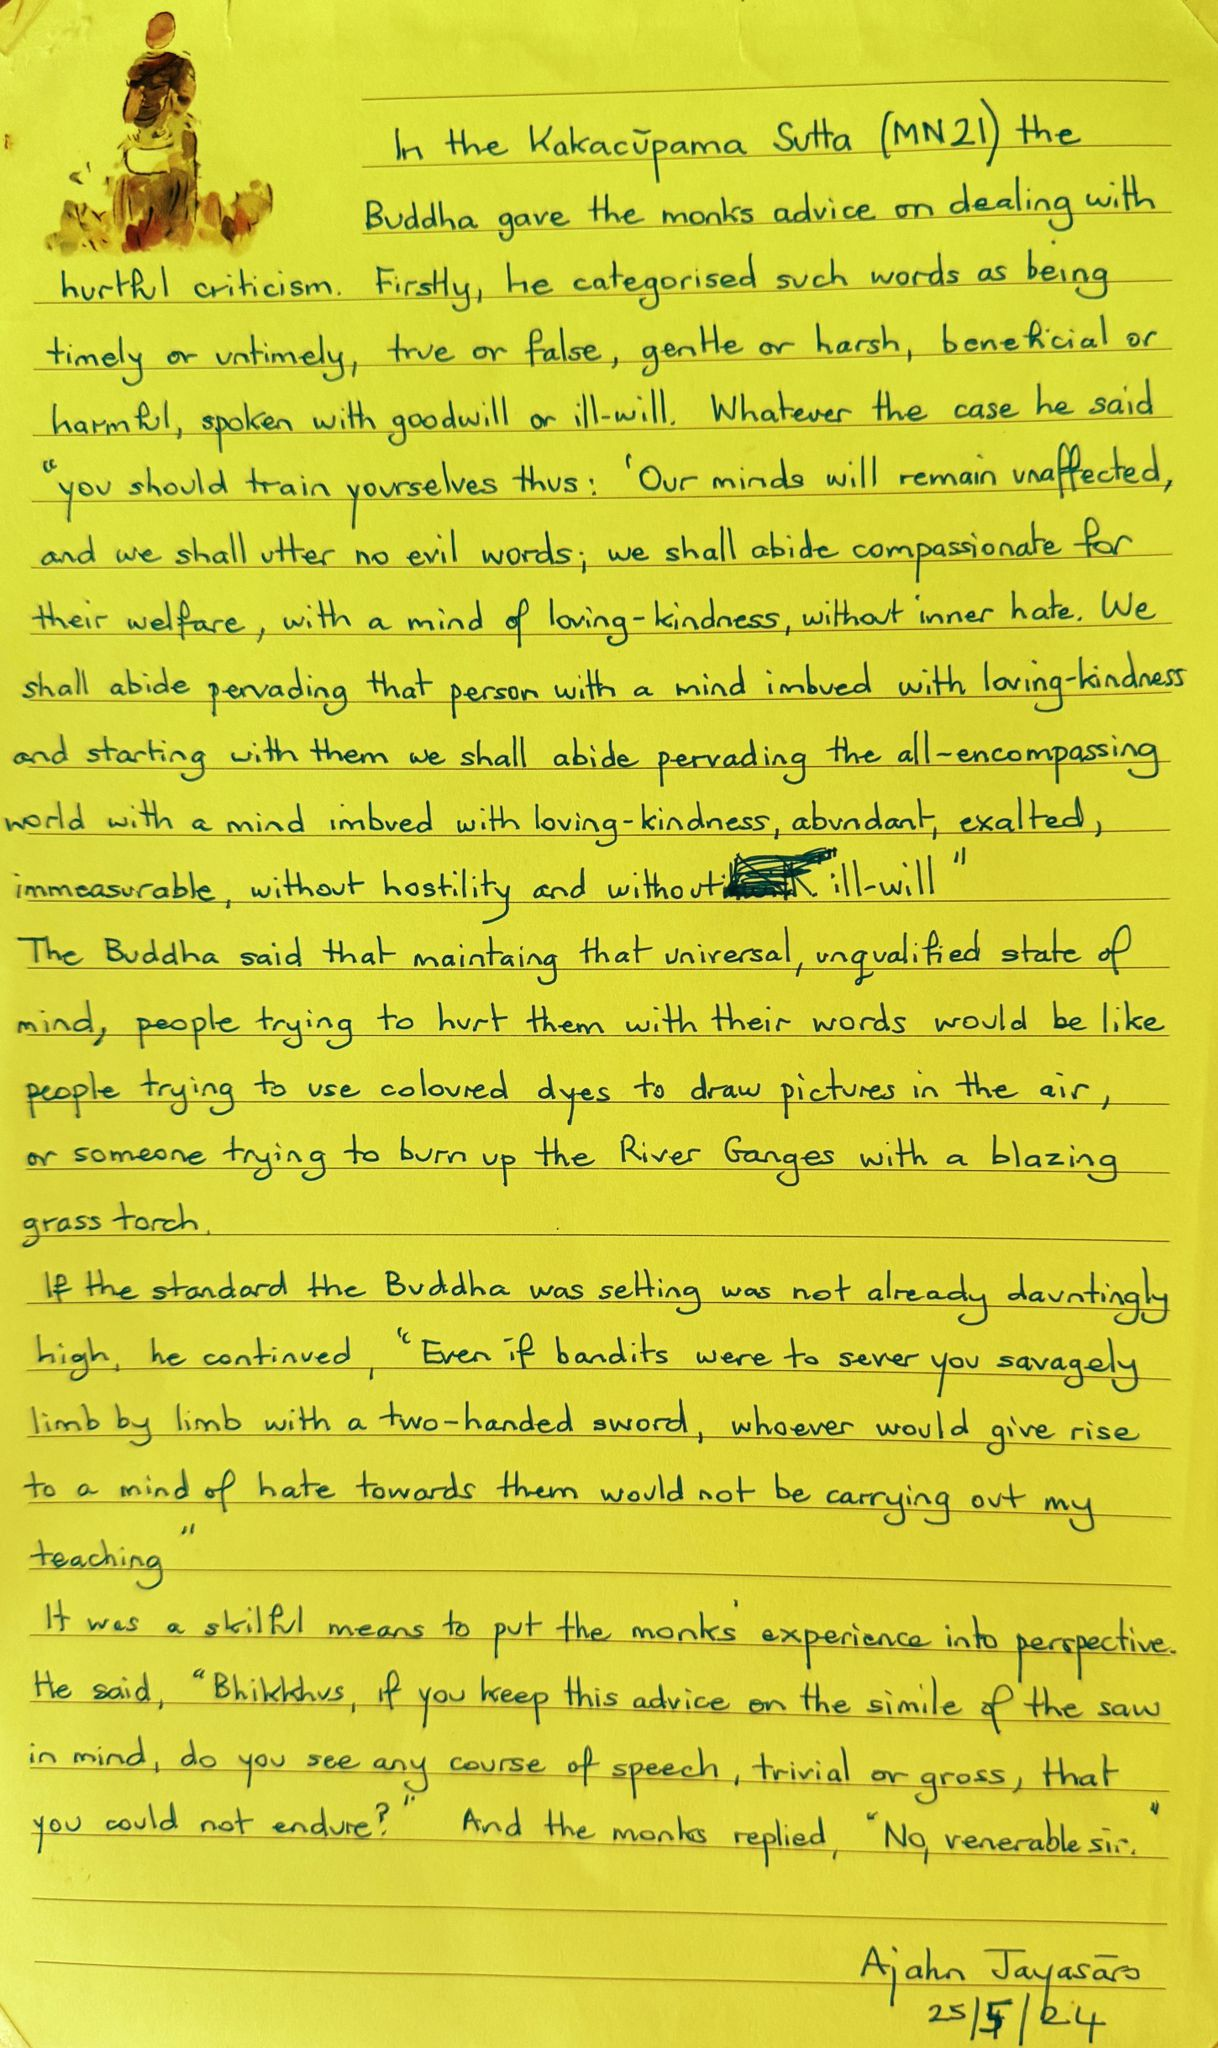 In the Kakacūpama Sutta (MN21) the
Buddha gave the monks advice on dealing with
hurtful criticism. Firstly, he categorised such words as being
timely or untimely, true or false, gentle or harsh, beneficial or
harmful, spoken with goodwill or ill-will. Whatever the case he said
"you should train yourselves thus: 'Our minds will remain unaffected,
and we shall utter no evil words; we shall abide compassionate for
their welfare, with a mind of loving-kindness, without inner hate. We
shall abide pervading that person with a mind imbued with loving-kindness
and starting with them we shall abide pervading the all-encompassing
world with a mind imbued with loving-kindness, abundant, exalted,
immeasurable, without hostility and without ill-will"
The Buddha said that maintaing that universal, unqualified state of
mind, people trying to hurt them with their words would be like
people trying to use coloured dyes to draw pictures in the air,
or someone trying to burn up the River Ganges with a blazing
grass torch.
If the standard the Buddha was setting was not already dauntingly
high, he continued, "Even if bandits were to sever you savagely
limb by limb with a two-handed sword, whoever would give rise
to a mind of hate towards them would not be carrying out my
teaching"
It was a skilful means to put the monks' experience into perspective.
He said, "Bhikkhus, if you keep this advice on the simile of the saw
in mind, do you see any course of speech, trivial or gross, that
you could not endure?" And the monks replied, "No, venerable sir."
Ajahn Jayasāro
25/5/24